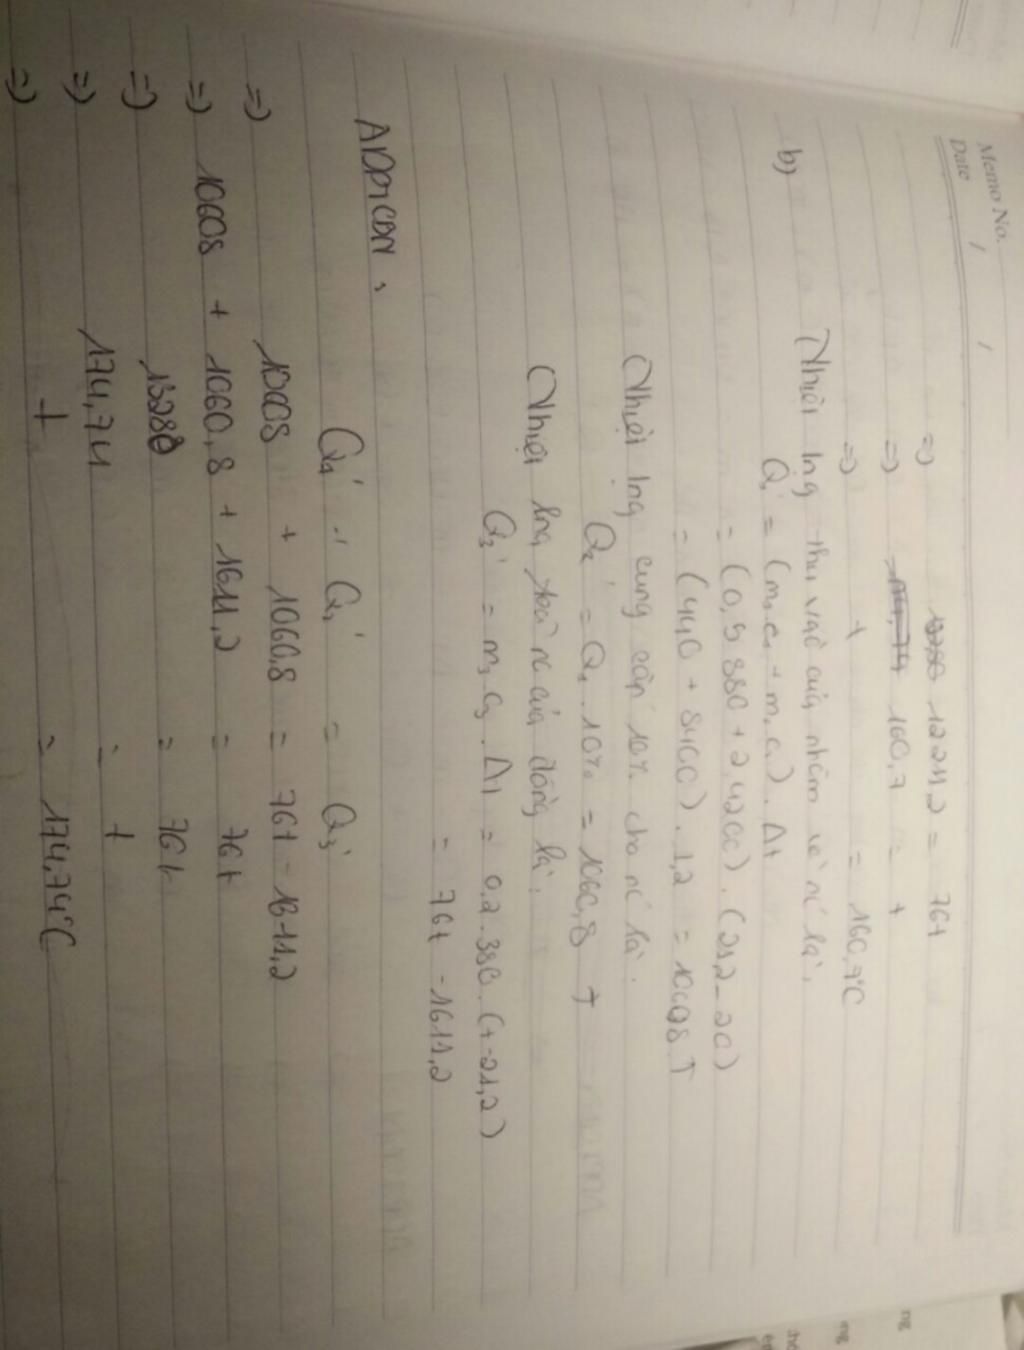 Memo No.
Date / /
=> 12211,2 = 76t
=> 160,7 = t
=> t = 160,7°C
b) Nhiệt lng thu vào của nhôm và nc là:
Q₁' = (m₁c₁ + m₂c₂).Δt
= (0,5.880 + 2.4200).(21,2 - 20)
= (440 + 8400).1,2 = 10608 J
Nhiệt lng cung cấp 10% cho nc là:
Q₂' = Q₁.10% = 1060,8 J
Nhiệt lng toả ra của đồng là:
Q₃' = m₃c₃.Δt = 0,2.380.(t-21,2)
= 76t - 1611,2
ADPTCBN:
Q₁' + Q₂' = Q₃'
=> 10608 + 1060,8 = 76t - 1611,2
=> 10608 + 1060,8 + 1611,2 = 76t
=> 13280 = 76t
=> 174,74 = t
=> t = 174,74°C
ng
ng